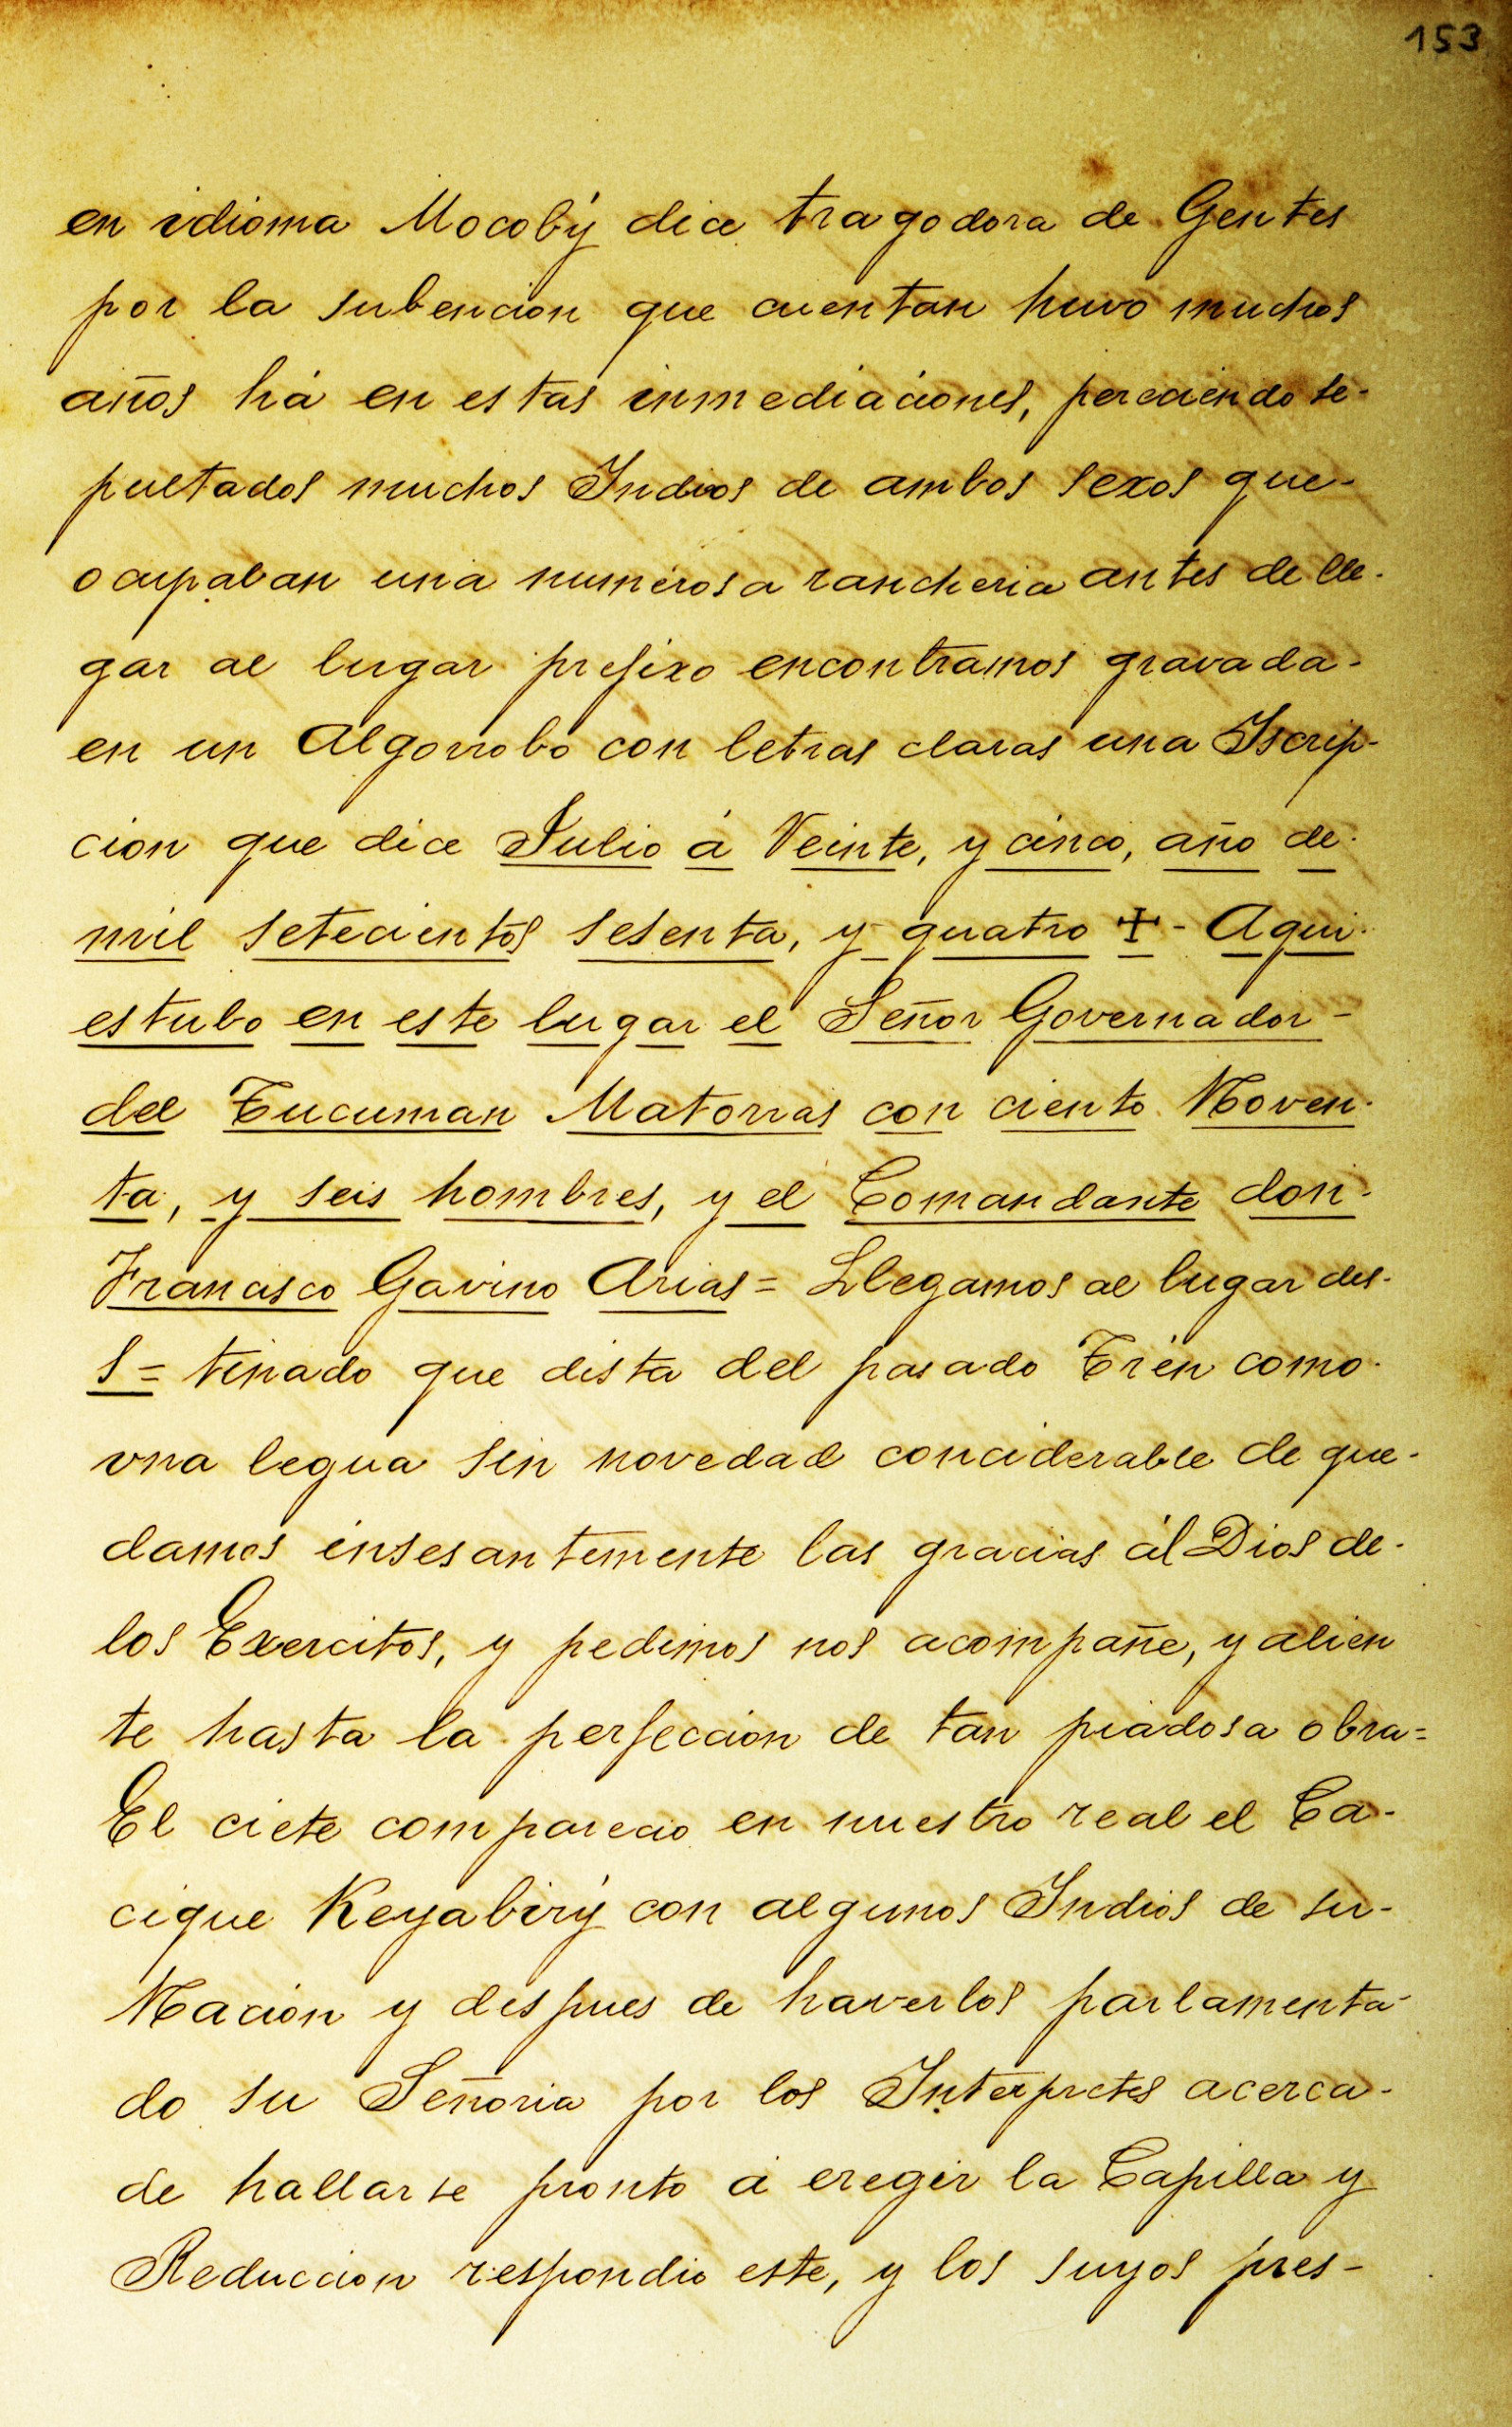 153
en idioma Mocobý dice tragodora de Gentes
por la subencion que cuentan huvo muchos
años há en estas inmediaciones, pereciendo se-
pultados muchos Indios de ambos sexos que-
ocupaban una numerosa rancheria antes de lle-
gar al lugar prefixo encontramos gravada-
en un Algorrobo con letras claras una Iscrip-
cion que dice Julio á Veinte, y cinco, año de-
mil setecientos sesenta, y quatro ✝- Aqui-
estubo en este lugar el Señor Governador-
del Tucuman Matorras con ciento Noven-
ta, y seis hombres, y el Comandante don-
Francisco Gavino Arias= Llegamos al lugar des-
S= tinado que dista del pasado Tren como-
vna legua sin novedad conciderable de que-
damos insesantemente las gracias ál Dios de-
los Exercitos, y pedimos nos acompañe, y alien
te hasta la perfeccion de tan piadosa obra=
El ciete comparecio en nuestro real el Ca-
cique Keyabirý con algunos Indios de su-
Nacion y despues de haverlos parlamenta-
do su Señoria por los Interpretes acerca-
de hallarse pronto á eregir la Capilla y
Reduccion respondio este, y los suyos pres-